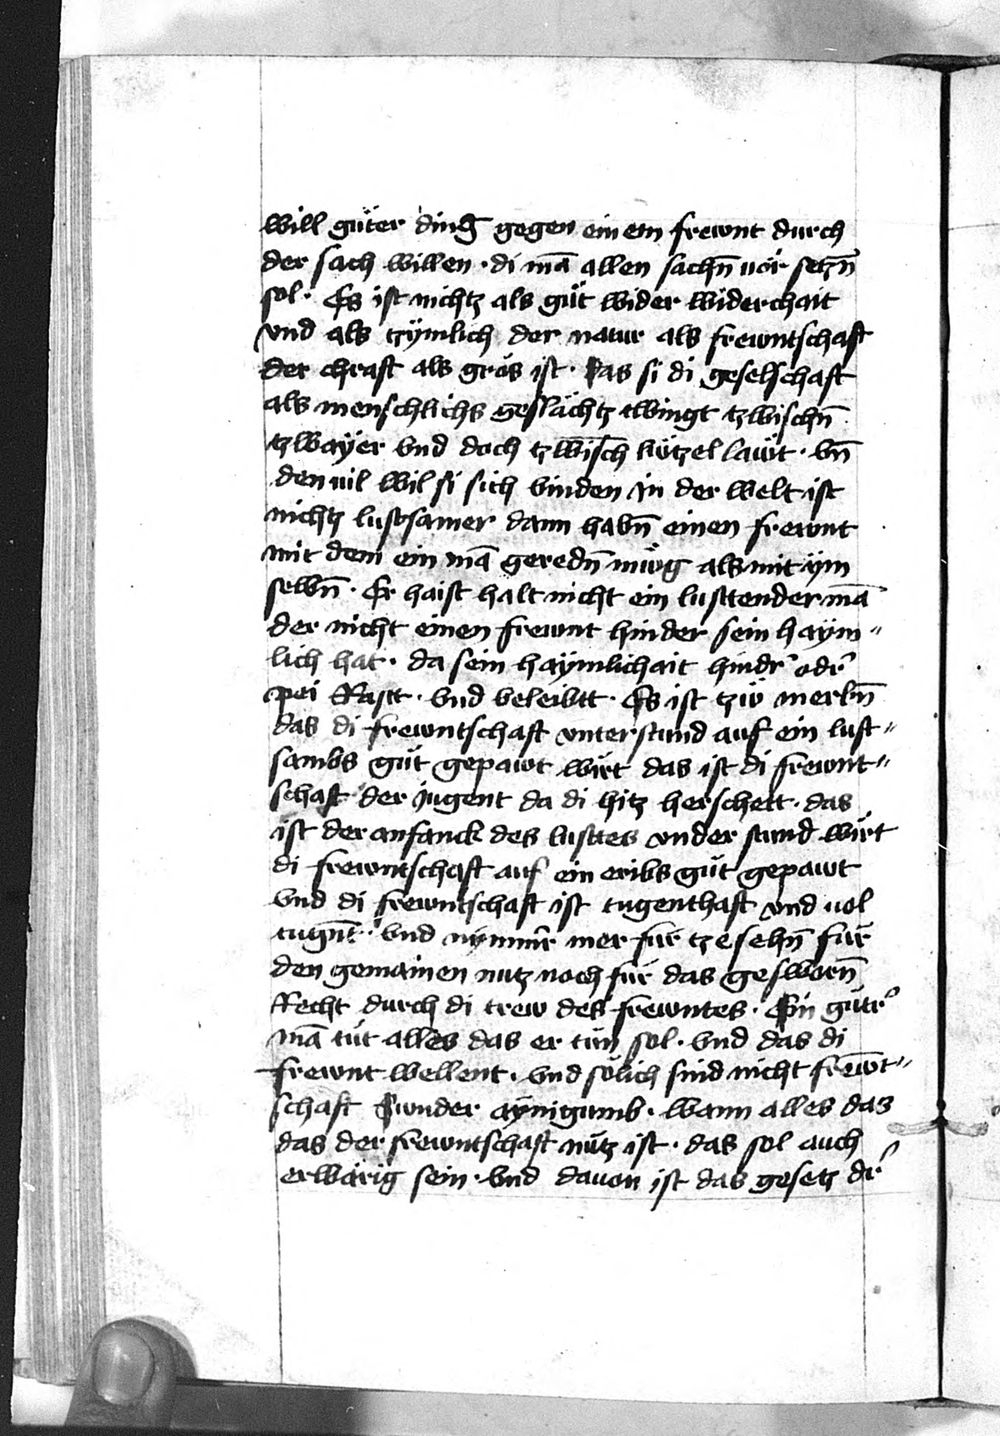 will güter ding gegen einem frewnt durch
der sach willen · di mā allen sachn̄ uör setzn̄
sol · Es ist nichtz als güt wider widerchait
vnd als tzÿmlich der natur als frewntschaft
der chraft als grös ist · das si di geselschaft
als menschlichs geslächtz twingt tzwischn̄
tzwayer vnd doch tzwisch lützel lawt · vn̄
den uil wil si sich binden in der welt ist
nichtz lustsamer dann habn̄ einen frewnt
mit dem ein mā geredn̄ müg als mit ÿm
selbn̄ · Er haist halt nicht ein lusttender mā
der nicht einen frewnt hinder sein haÿm〃
lich hat · da sein haÿmlichait hindr̕ odr̕
pei Rastt · vnd beleibtt · Es ist tzw̋ merkn̄
das di frewntschaft vnterstund auf ein lust〃
sambs güt gepawt wirt das ist di frewnt〃
schaft der jugent da di hitz herschett · das
ist der anfanck des lusttes vnder stund wirt
di frewntschaft auf ein eribs güt gepawt
vnd di frewntschaft ist tugenthaft vnd uol
tugn̄t · vnd nÿmm̄r mer für tzesehn̄ für
den gemainen nutz noch für das gesworn̄
Recht durch di trew des frewntes · Ein gütr̕
mā tüt alles das er tün sol · vnd das di
frewnt wellent · vnd sölich sind nicht frew̄t〃
schaft Sunder aÿnigumb · wann alles das
das der frewntschaft nütz ist · das sol auch
erwärig sein · vnd dauon ist das gesetz dr̕